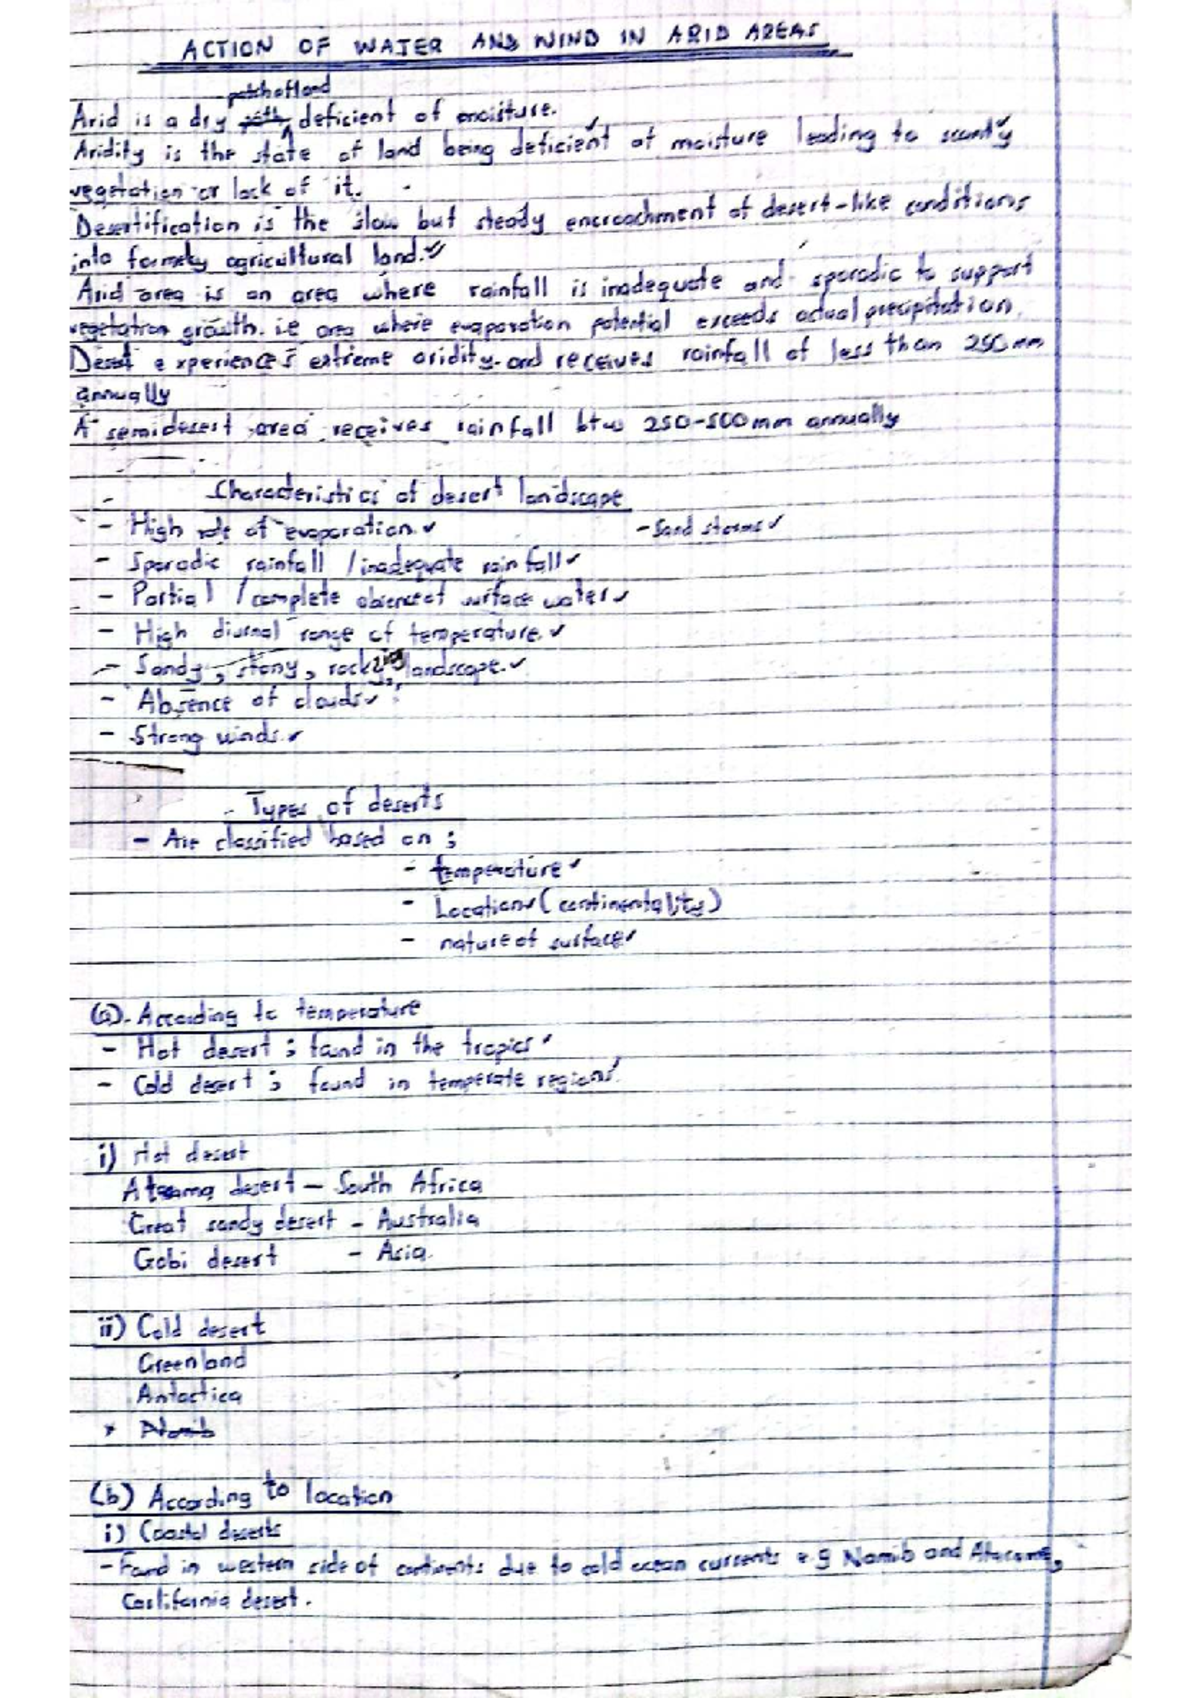 ACTION OF WATER AND WIND IN ARID AREAS
patch of land
Arid is a dry deficient of moisture.
Aridity is the state of land being deficient of moisture leading to scanty
vegetation or lack of it.
Desertification is the slow but steady encroachment of desert-like conditions
into formely agricultural land.
Arid area is an area where rainfall is inadequate and sporadic to support
vegetation growth. i.e area where evaporation potential exceeds actual precipitation.
Desert experiences extreme aridity and receives rainfall of less than 250mm
annually
A semidesert area receives rainfall btw 250-500mm annually
Characteristics of desert landscape
- High rate of evaporation. - Sand storms
- Sporadic rainfall / inadequate rainfall
- Partial / complete absence of surface water
- High diurnal range of temperature.
- Sandy, stony, rocky landscape.
- Absence of clouds
- Strong winds.
- Types of deserts
- Are classified based on ;
- temperature
- Location (continentality)
- nature of surface
(a). According to temperature
- Hot desert ; found in the tropics
- Cold desert ; found in temperate regions
i) Hot desert
Atacama desert - South Africa
Great sandy desert - Australia
Gobi desert - Asia.
ii) Cold desert
Greenland
Antactica
x Namib
(b) According to location
i) Coastal deserts
- Found in western side of continents due to cold ocean currents e.g Namib and Atacama,
California desert.